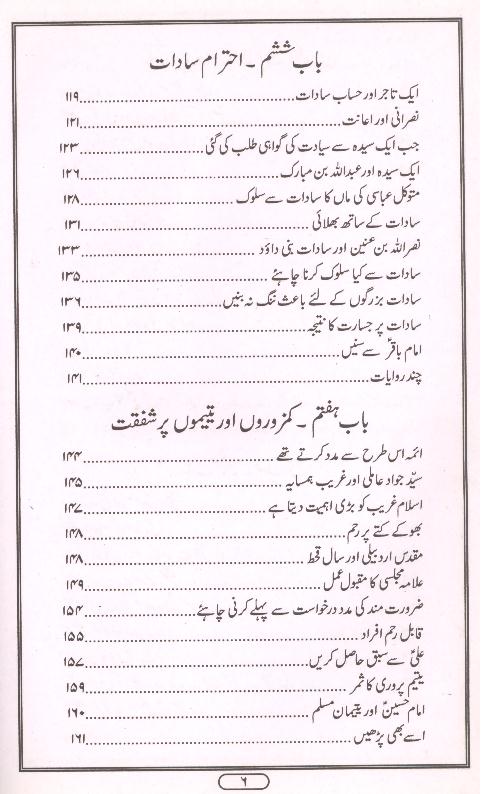 باب ششم ۔ احترام سادات
ایک تاجر اور حساب سادات ........ ۱۱۹
نصرانی اور اعانت ........ ۱۲۱
جب ایک سیدہ سے سیادت کی گواہی طلب کی گئی ........ ۱۲۳
ایک سیدہ اور عبداللہ بن مبارک ........ ۱۲۶
متوکل عباسی کی ماں کا سادات سے سلوک ........ ۱۲۸
سادات کے ساتھ بھلائی ........ ۱۳۱
نصراللہ بن عنین اور سادات بنی داؤد ........ ۱۳۳
سادات سے کیا سلوک کرنا چاہئے ........ ۱۳۵
سادات بزرگوں کے لئے باعث ننگ نہ بنیں ........ ۱۳۶
سادات پر جسارت کا نتیجہ ........ ۱۳۹
امام باقرؑ سے سنیں ........ ۱۴۰
چند روایات ........ ۱۴۱
باب ہفتم ۔ کمزوروں اور یتیموں پر شفقت
ائمہ اس طرح سے مدد کرتے تھے ........ ۱۴۴
سیّد جواد عاملی اور غریب ہمسایہ ........ ۱۴۵
اسلام غریب کو بڑی اہمیت دیتا ہے ........ ۱۴۷
بھوکے کتے پر رحم ........ ۱۴۸
مقدس اردبیلی اور سال قحط ........ ۱۴۸
علامہ مجلسی کا مقبول عمل ........ ۱۴۹
ضرورت مند کی مدد درخواست سے پہلے کرنی چاہئے ........ ۱۵۴
قابل رحم افراد ........ ۱۵۵
علیؑ سے سبق حاصل کریں ........ ۱۵۷
یتیم پروری کا ثمر ........ ۱۵۹
امام حسینؑ اور یتیمان مسلم ........ ۱۶۰
اسے بھی پڑھیں ........ ۱۶۱
۶